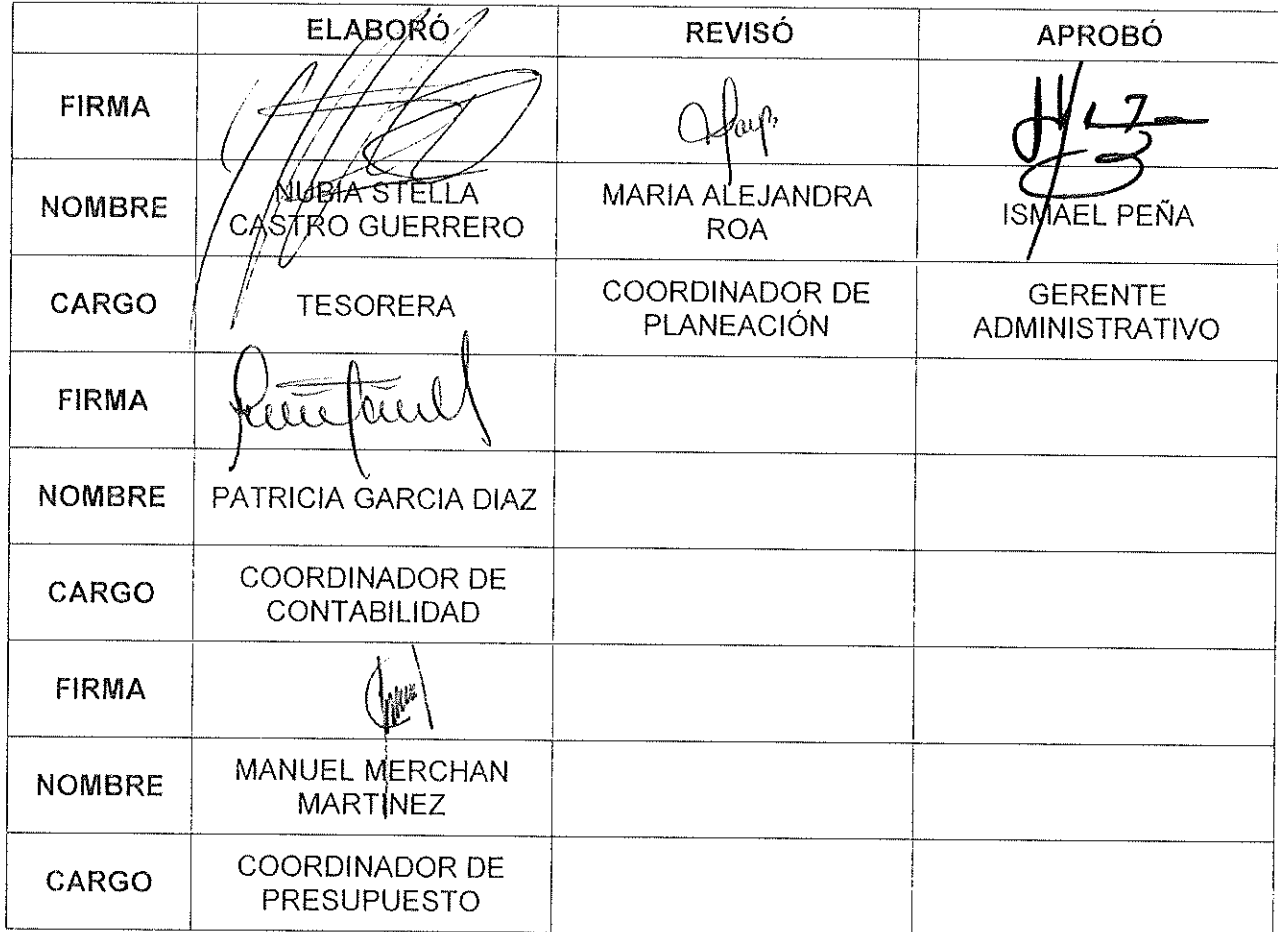 ELABORÓ REVISÓ APROBÓ
FIRMA
NOMBRE NUBIA STELLA CASTRO GUERRERO MARIA ALEJANDRA ROA ISMAEL PEÑA
CARGO TESORERA COORDINADOR DE PLANEACIÓN GERENTE ADMINISTRATIVO
FIRMA
NOMBRE PATRICIA GARCIA DIAZ
CARGO COORDINADOR DE CONTABILIDAD
FIRMA
NOMBRE MANUEL MERCHAN MARTINEZ
CARGO COORDINADOR DE PRESUPUESTO